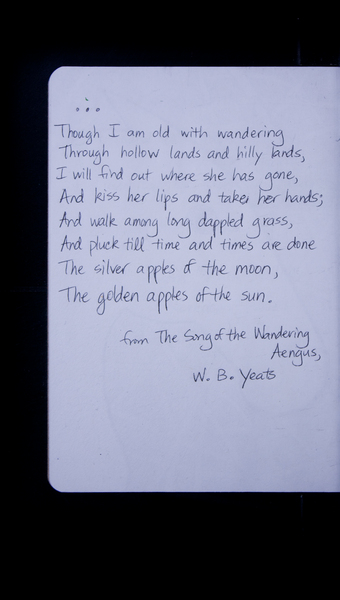 ...
Though I am old with wandering
Through hollow lands and hilly lands,
I will find out where she has gone,
And kiss her lips and take her hands;
And walk among long dappled grass,
And pluck till time and times are done
The silver apples of the moon,
The golden apples of the sun.
from The Song of the Wandering
Aengus,
W. B. Yeats